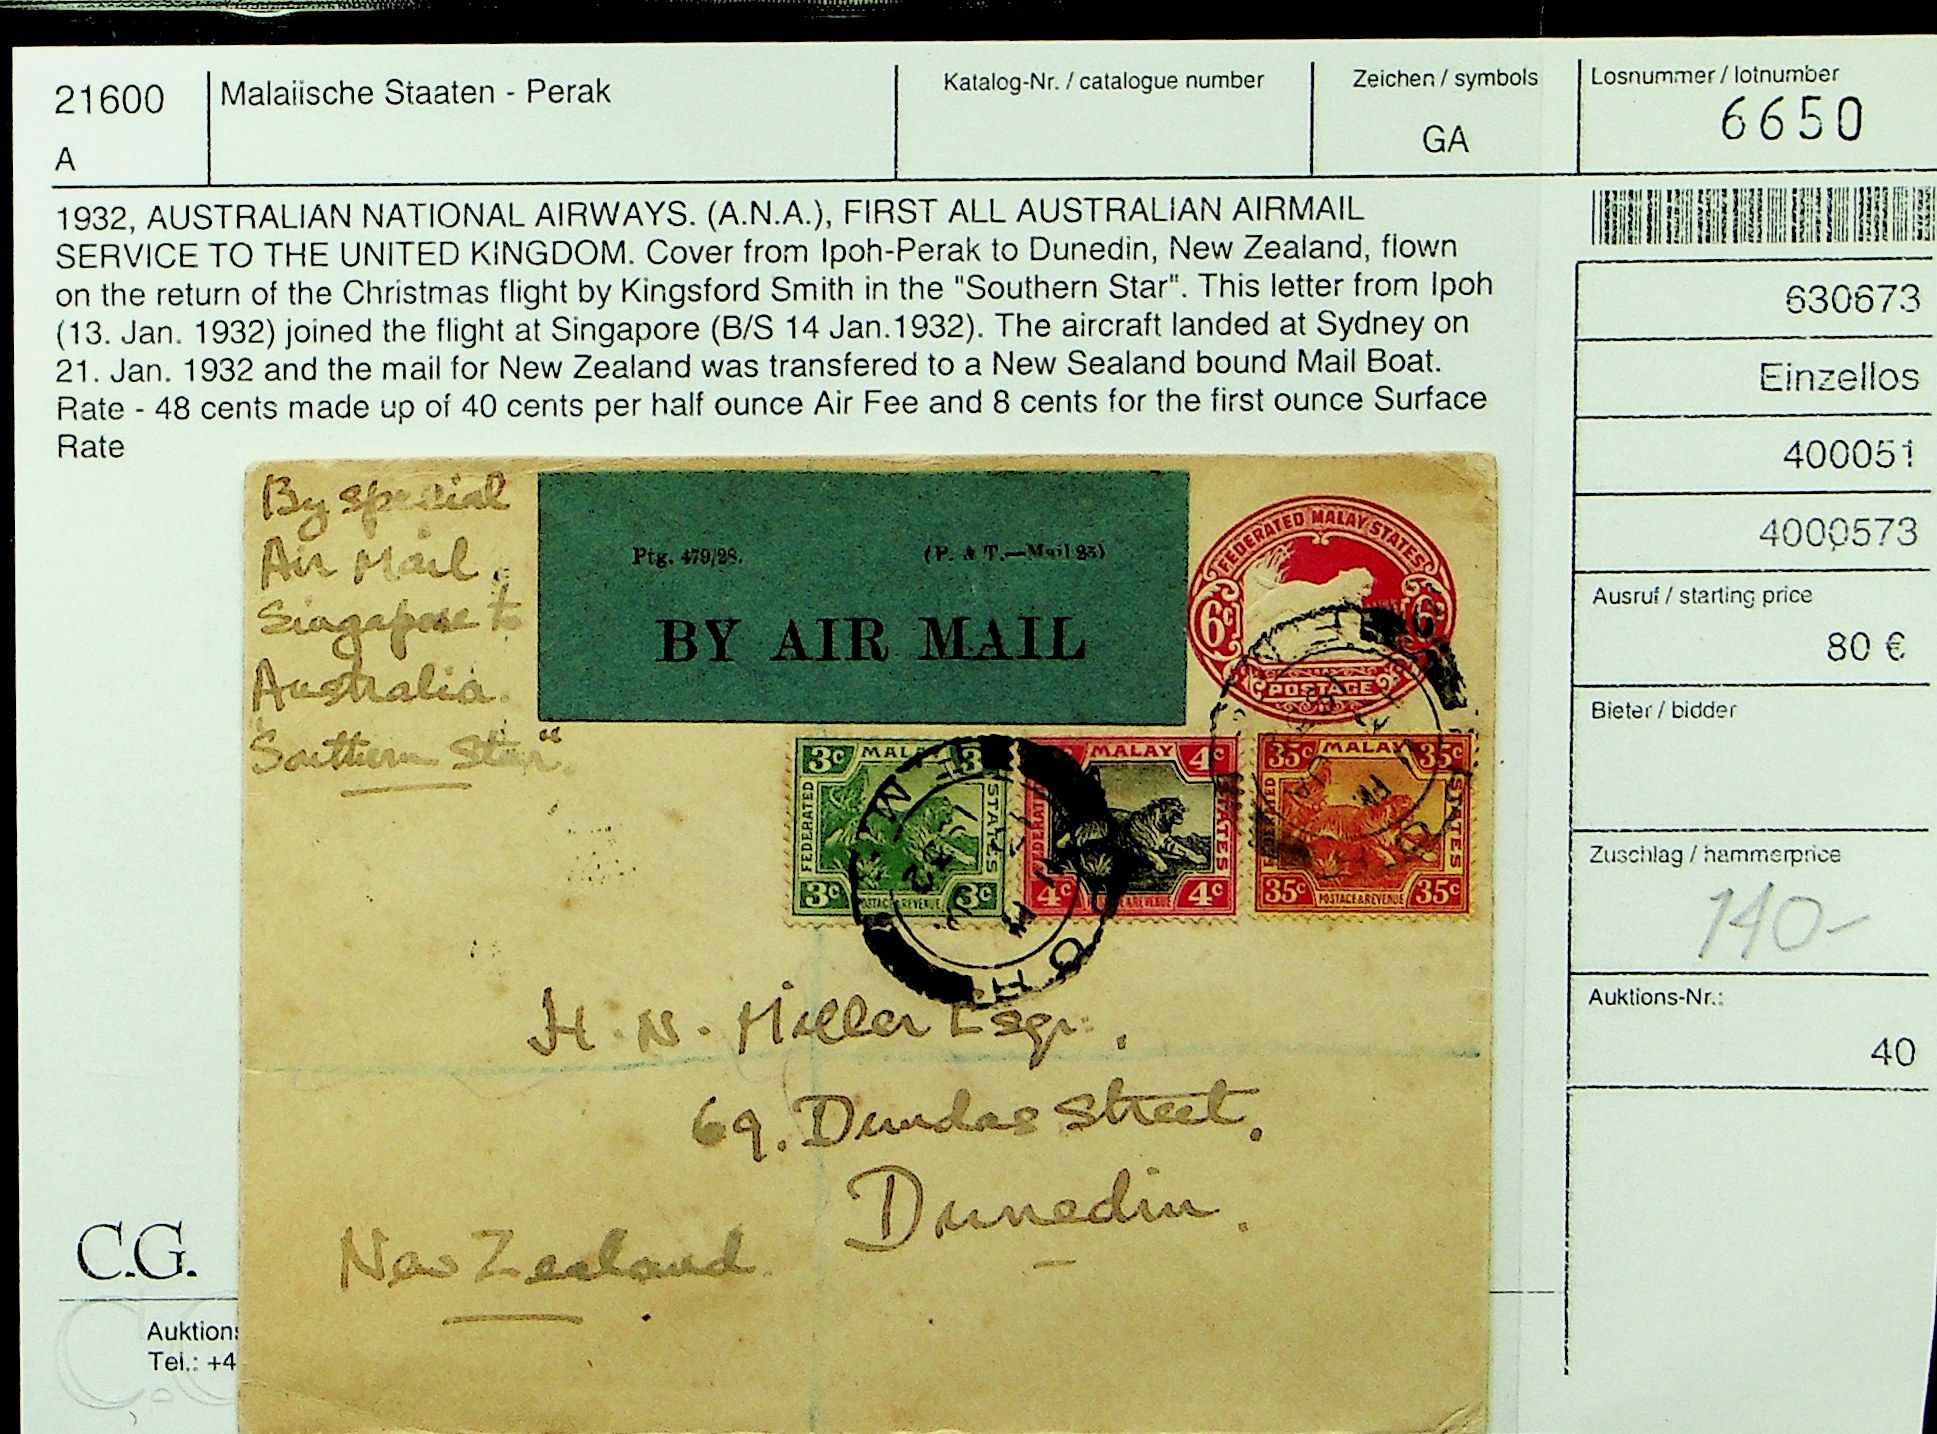 21600
A
Malaiische Staaten - Perak
Katalog-Nr. / catalogue number
Zeichen / symbols
GA
Losnummer / lotnumber
6650
1932, AUSTRALIAN NATIONAL AIRWAYS. (A.N.A.), FIRST ALL AUSTRALIAN AIRMAIL
SERVICE TO THE UNITED KINGDOM. Cover from Ipoh-Perak to Dunedin, New Zealand, flown
on the return of the Christmas flight by Kingsford Smith in the "Southern Star". This letter from Ipoh
(13. Jan. 1932) joined the flight at Singapore (B/S 14 Jan.1932). The aircraft landed at Sydney on
21. Jan. 1932 and the mail for New Zealand was transfered to a New Sealand bound Mail Boat.
Rate - 48 cents made up of 40 cents per half ounce Air Fee and 8 cents for the first ounce Surface
Rate
630673
Einzellos
400051
4000573
Ausruf / starting price
80 €
Bieter / bidder
Zuschlag / hammerprice
140-
Auktions-Nr.:
40
By special
Air Mail
Singapore to
Australia.
"Southern Star"
Ptg. 479/28. (P. & T.—Mail 25)
BY AIR MAIL
FEDERATED MALAY STATES
6c 6c
POSTAGE
3c MALAY 3c
FEDERATED STATES
3c POSTAGE & REVENUE 3c
MALAY 4c
FEDERATED STATES
4c POSTAGE & REVENUE 4c
35c MALAY 35c
FEDERATED STATES
35c POSTAGE & REVENUE 35c
H. N. Miller Esqr.,
69. Dundas Street.
Dunedin.
New Zealand.
C.G.
Auktions
Tel.: +4